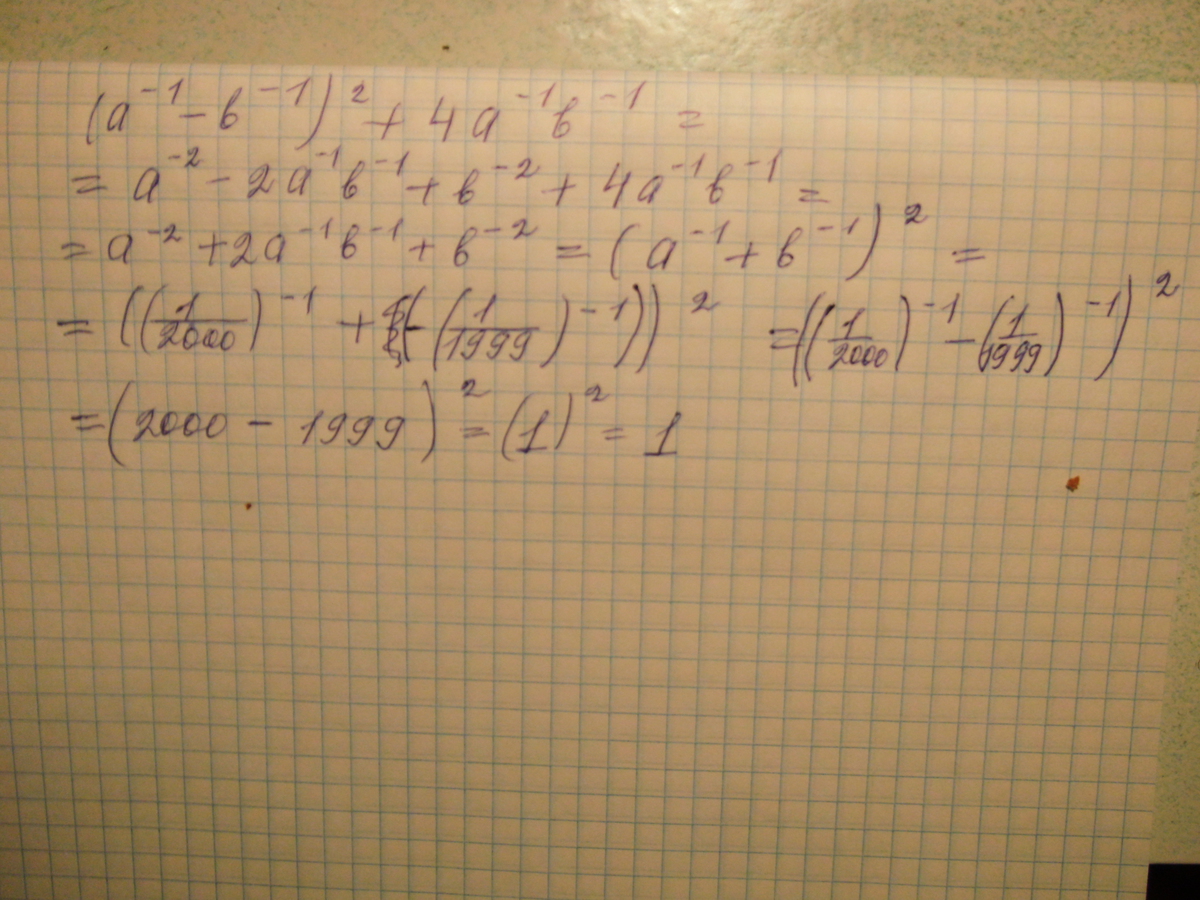 (a⁻¹ − в⁻¹)² + 4a⁻¹в⁻¹ =
= a⁻² − 2a⁻¹в⁻¹ + в⁻² + 4a⁻¹в⁻¹ =
= a⁻² + 2a⁻¹в⁻¹ + в⁻² = (a⁻¹ + в⁻¹)² =
= ((1/2000)⁻¹ + (−(1/1999)⁻¹))² = ((1/2000)⁻¹ − (1/1999)⁻¹)²
= (2000 − 1999)² = (1)² = 1